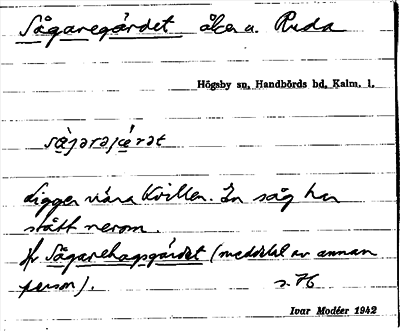 Sågaregärdet åker u. Ruda
Högsby sn, Handbörds hd, Kalm. l.
Ligger nära Kvillen. En såg har
stått nerom.
Jfr Sågarehagsgärdet (meddelat av annan
person). s. H
Ivar Modéer 1942